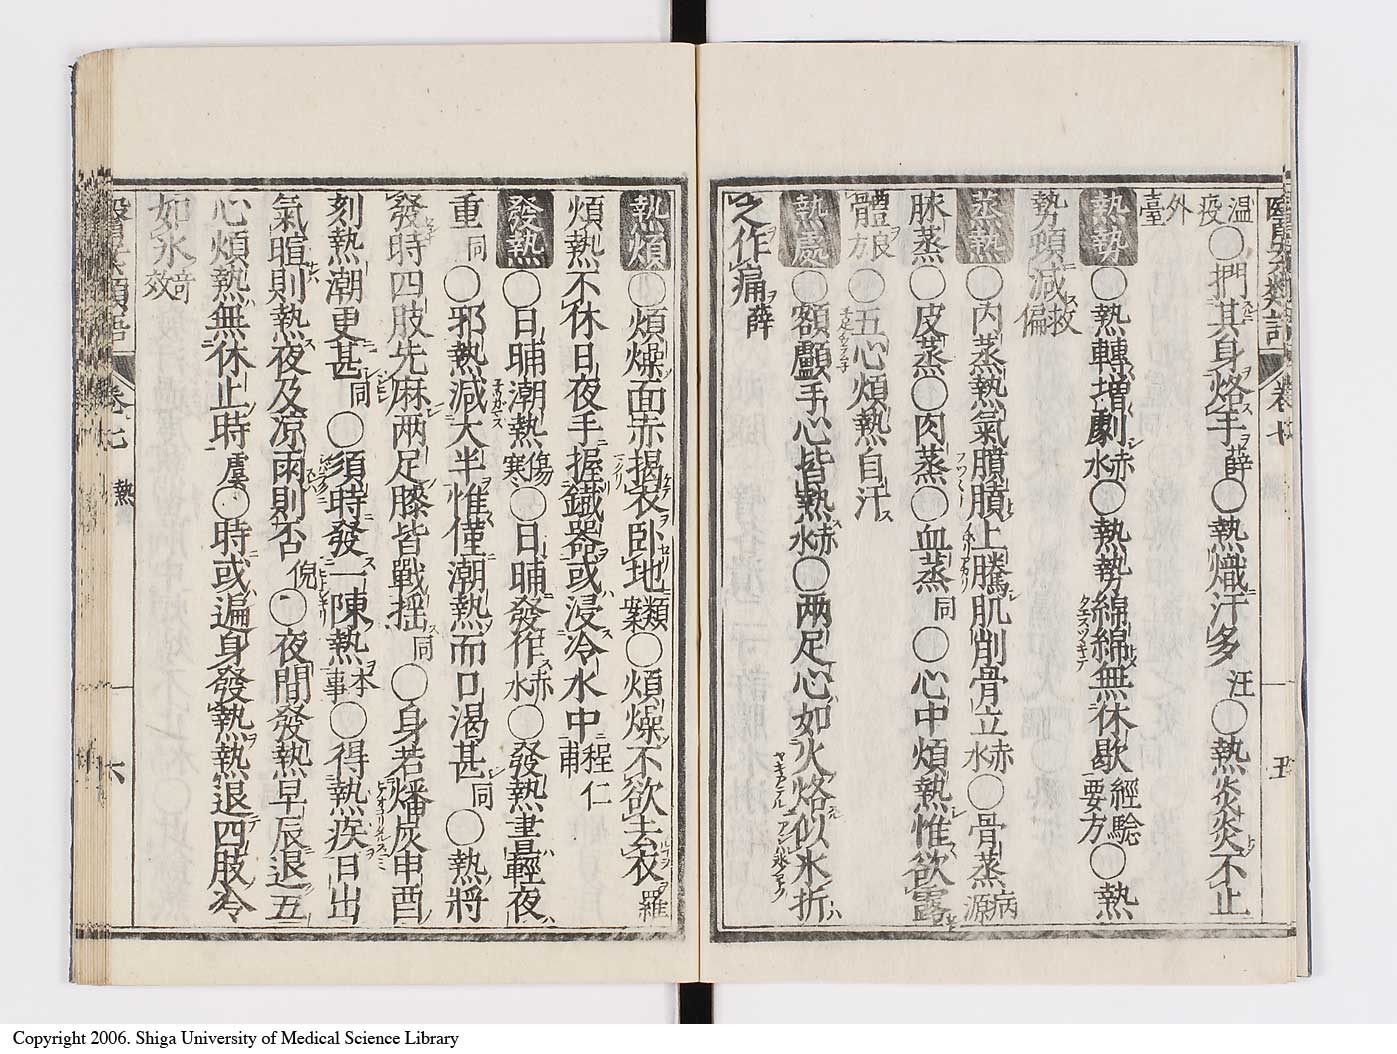 温疫○捫其身烙手薛○熱熾汗多汪○熱炎炎不止
外臺
熱勢○熱轉増劇赤水○熱勢綿綿無休歇經驗要方○熱
勢頓減救偏
蒸熱○内蒸熱氣膹膹上騰肌削骨立赤水○骨蒸病源
脉蒸○皮蒸○肉蒸○血蒸同○心中煩熱惟欲露
體良方○五心煩熱自汗
熱處○額顱手心皆熱赤水○两足心如火烙似氷折
之作痛薛
熱煩○煩燥面赤揭衣卧地類案○煩燥不欲去衣羅
煩熱不休日夜手握鐵器或浸冷水中程仁甫
發熱○日晡潮熱傷寒○日晡發作赤水○發熱晝輕夜
重同○邪熱減大半惟僅潮熱而口渴甚同○熱將
發時四肢先麻两足膝皆戰揺同○身若燔灰申酉
刻熱潮更甚同○須時發一陳熱本事○得熱疾日出
氣暄則熱夜及涼雨則否倪○夜間發熱早辰退五
心煩熱無休止時虞○時或遍身發熱熱退四肢冷
如氷奇效
卷七
熱
六
Copyright 2006. Shiga University of Medical Science Library